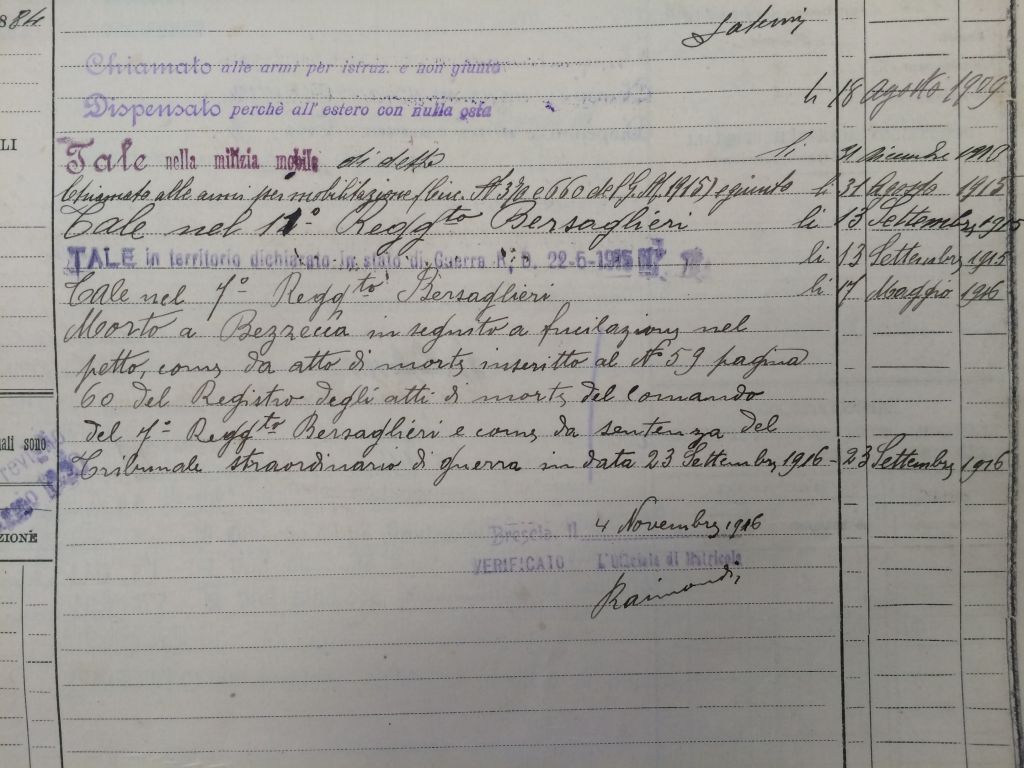 884
Chiamato alle armi per istruz. e non giunto
Dispensato perchè all' estero con nulla osta li 18 Agosto 1909
LI
Tale nella milizia mobile di detto li 31 dicembre 1910
Chiamato alle armi per mobilitazione (Circ. N. e 660 del G. M. 1915) e giunto li 31 Agosto 1915
Tale nel 11° Regg.to Bersaglieri li 13 Settembre 1915
TALE in territorio dichiarato in stato di Guerra R. D. 22-5-1915 N° li 13 Settembre 1915
Tale nel 7° Regg.to Bersaglieri li 17 Maggio 1916
Morto a Bezzecca in seguito a fucilazione nel
petto, come da atto di morte inscritto al N° 59 pagina
60 del Registro degli atti di morte del Comando
del 7° Regg.to Bersaglieri e come da sentenza del
Tribunale straordinario di guerra in data 23 Settembre 1916 - 23 Settembre 1916
ali sono
Brescia, li 4 Novembre 1916
ZIONE
VERIFICATO L'Ufficiale di Matricola
Raimondi